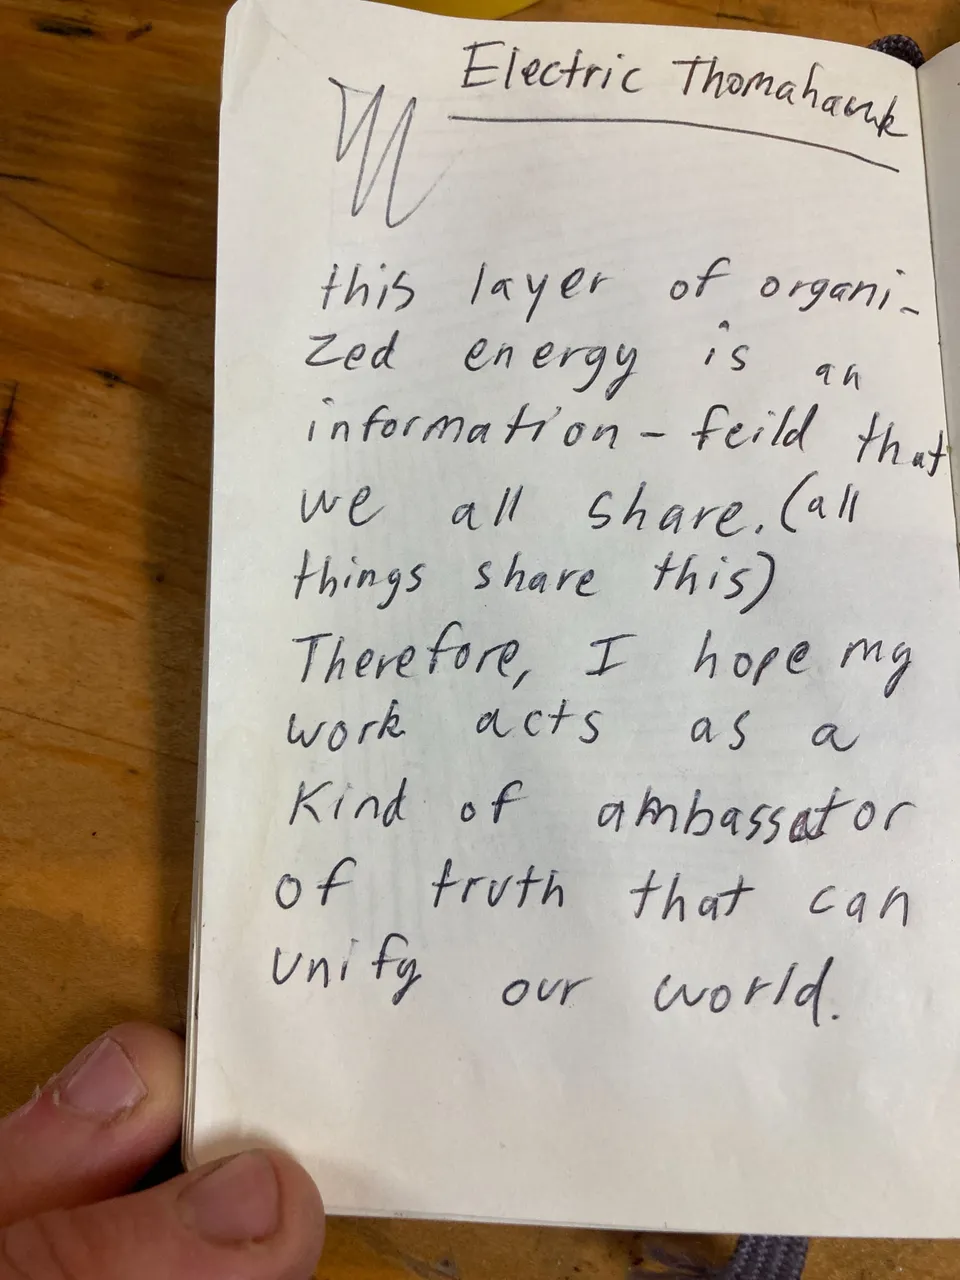 Electric Thomahawk
this layer of organi-
zed energy is an
information - feild that
we all share. (all
things share this)
Therefore, I hope my
work acts as a
Kind of ambassator
of truth that can
unify our world.